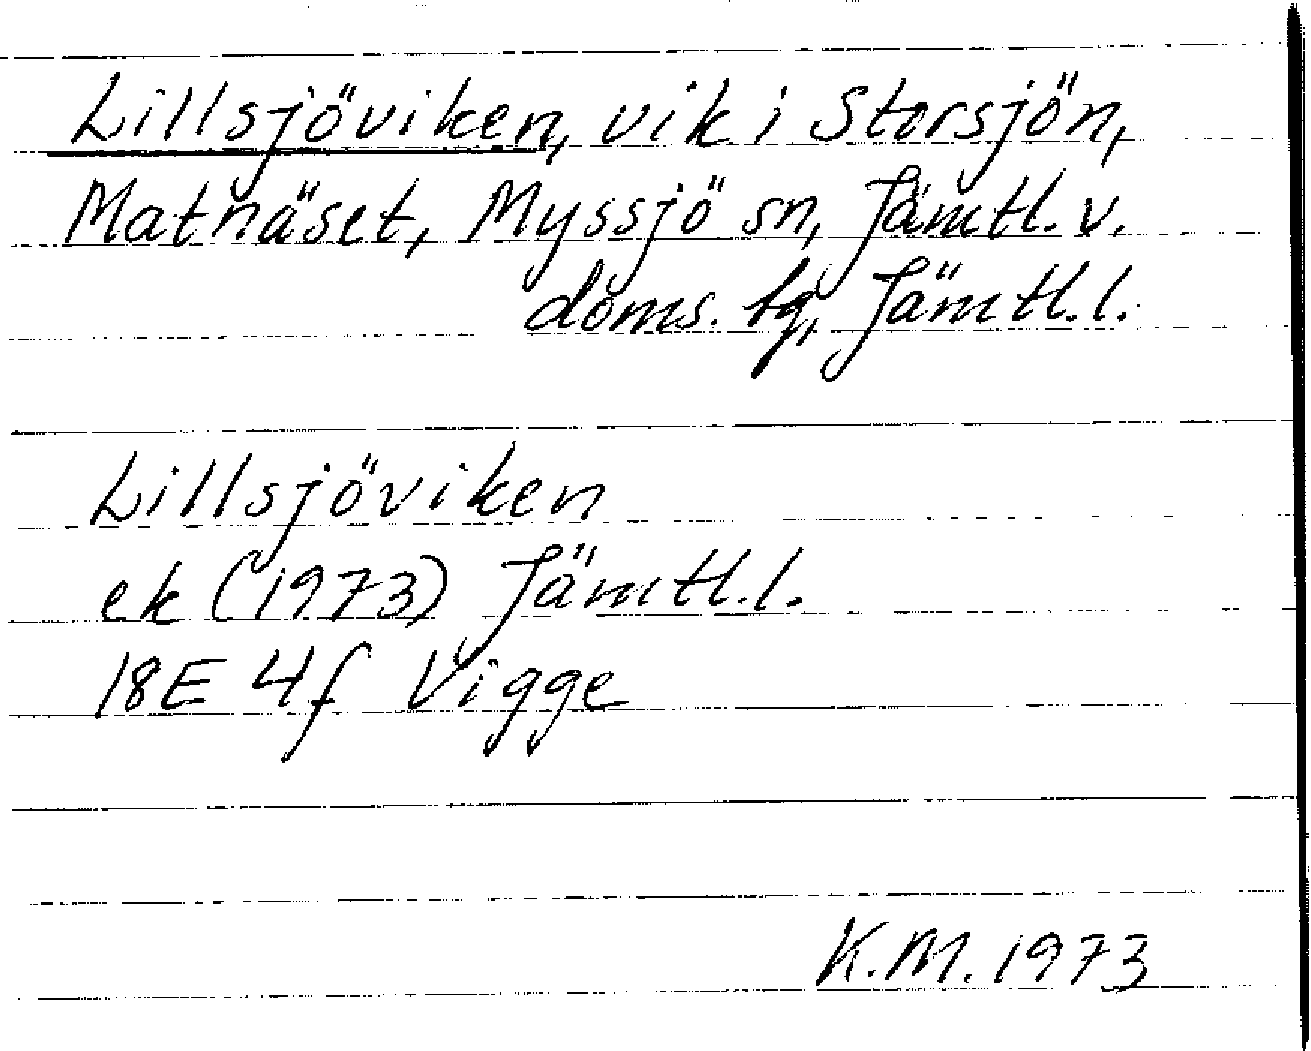 Lillsjöviken, vik i Storsjön,
Matnäset, Myssjö sn, Jämtl. v.
doms. tg, Jämtl. l.
Lillsjöviken
ek (1973) Jämtl. l.
18E 4f Vigge
K.M. 1973